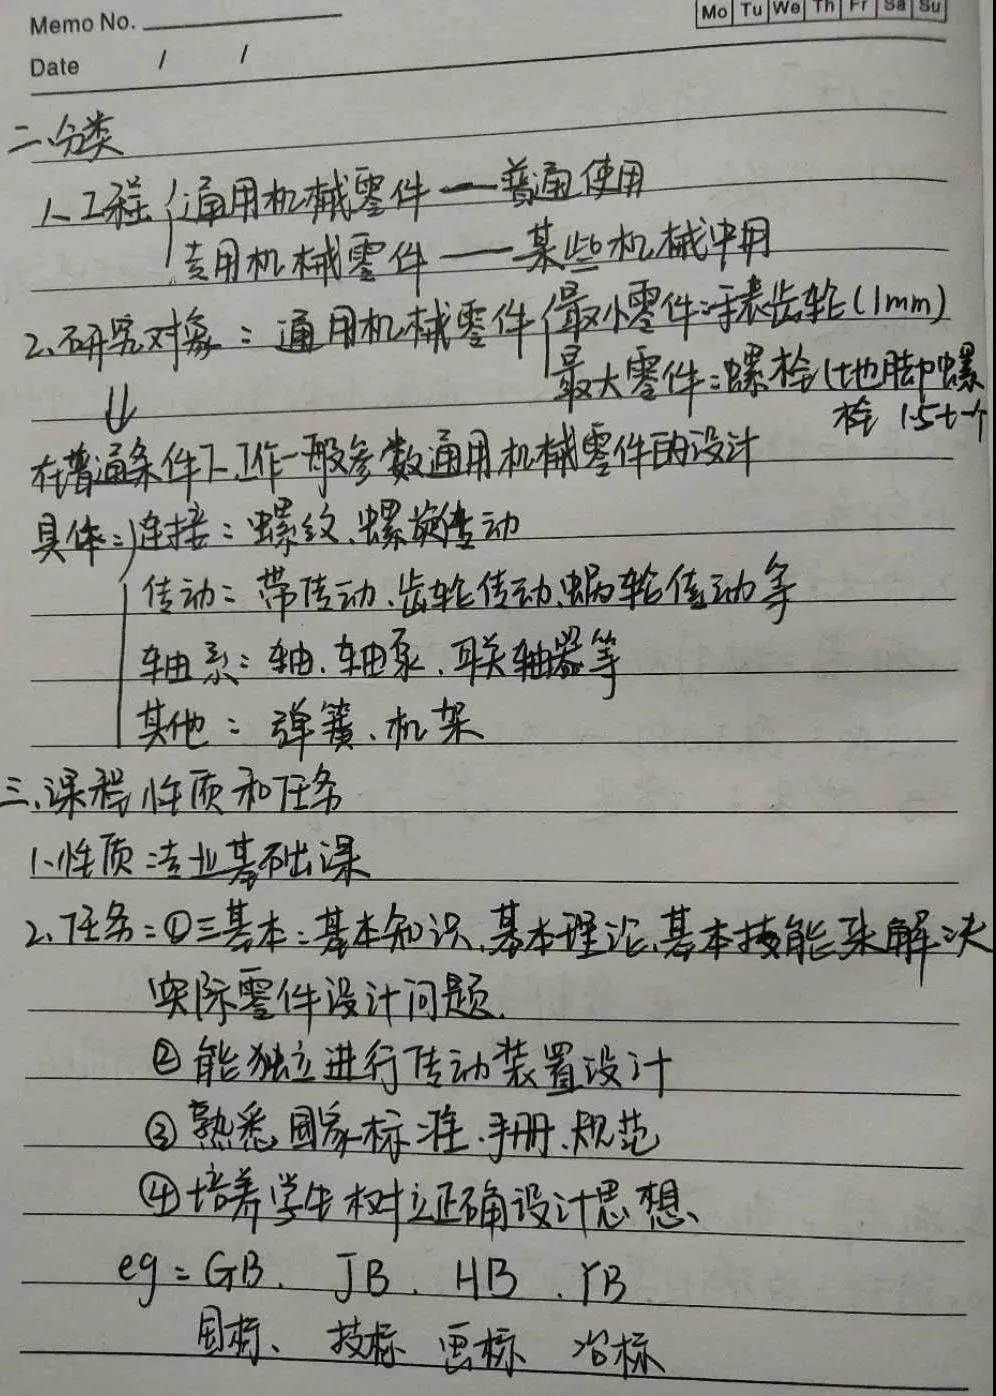 Memo No.
Mo Tu We Th Fr Sa Su
Date / /
二、分类
1、工程{通用机械零件——普通使用
专用机械零件——某些机械中用
2、研究对象：通用机械零件{最小零件：手表齿轮(1mm)
最大零件：螺栓(地脚螺
栓 1.5t一个
⇓
在普通条件下工作一般参数通用机械零件的设计
具体：{连接：螺纹、螺旋传动
传动：带传动、齿轮传动、蜗轮传动等
轴系：轴、轴泵、联轴器等
其他：弹簧、机架
三、课程性质和任务
1、性质：专业基础课
2、任务：①三基本：基本知识、基本理论、基本技能来解决
实际零件设计问题.
②能独立进行传动装置设计
③熟悉国家标准、手册、规范
④培养学生树立正确设计思想、
eg：GB、JB、HB、YB
国标、技标